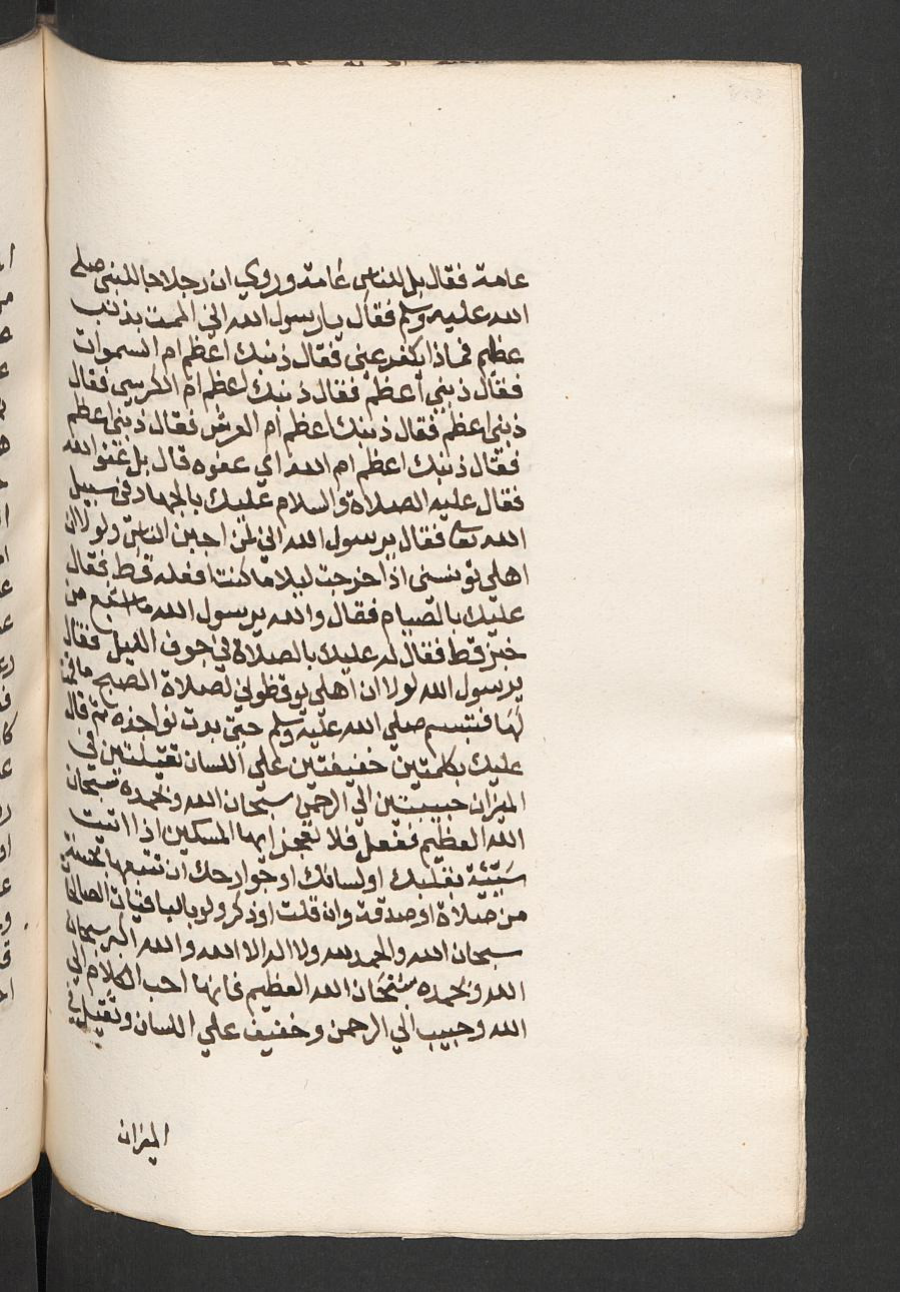 عامة فقال بل للناس عامة وروي ان رجلا جا للنبي صلي
الله عليه وسلم فقال يا رسول الله اني الممت بذنب
عظيم فماذا يكفر عني فقال ذنبك اعظم ام السموات
فقال ذنبي أعظم فقال ذنبك اعظم ام الكرسي فقال
ذنبي اعظم فقال ذنبك اعظم ام العرش فقال ذنبي اعظم
فقال ذنبك اعظم ام الله اي عفوه قال بل عفو الله
فقال عليه الصلاة والسلام عليك بالجهاد في سبيل
الله تعا فقال يرسول الله اني لمن اجبن الناس ولولا ان
اهلي تونسني اذا خرجت ليلا ما كنت افعله قط فقال
عليك بالصيام فقال والله يرسول الله ما اشبع من
خبز قط فقال له عليك بالصلاة في جوف الليل فقال
يرسول الله لولا ان اهلي يوقظوني لصلاة الصبح ما قمت
لها فتبسم صلي الله عليه وسلم حتي بدت نواجذه ثم قال
عليك بكلمتين خفيفتين علي اللسان ثقيلتين في
الميزان حبيبتين الي الرحمن سبحان الله وبحمده سبحان
الله العظيم ففعل فلا تعجز ايها المسكين اذا اتيت
سيئة بقلبك او لسانك او جوارحك ان تتبعها بحسنة
من صلاة او صدقة وان قلت او ذكر ولو بالباقيات الصالحات
سبحان الله والحمد لله ولا اله الا الله والله اكبر سبحان
الله وبحمده سبحان الله العظيم فانها احب الكلام الي
الله وحبيب الي الرحمن وخفيف علي اللسان وثقيل في
الميزان